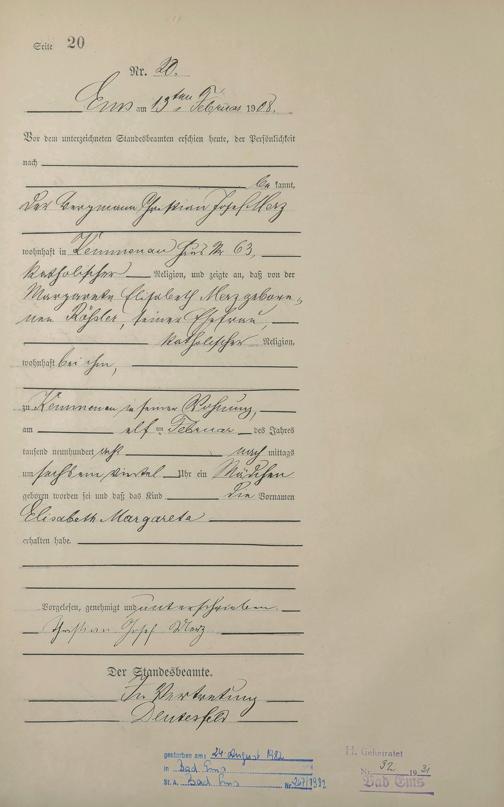 Seite 20
Nr. 20.
Ems am 13ten Februar 1908.
Vor dem unterzeichneten Standesbeamten erschien heute, der Persönlichkeit
nach
be kannt,
der Bergmann Christian Josef Merz
wohnhaft in Kemmenau Haus Nr 63,
katholischer Religion, und zeigte an, daß von der
Margareta Elisabeth Merz gebore-
nen Rößler, seiner Ehefrau,
katholischer Religion,
wohnhaft bei ihm,
zu Kemmenau in seiner Wohnung,
am elften Februar des Jahres
tausend neunhundert acht nach mittags
um sechs ein viertel Uhr ein Mädchen
geboren worden sei und daß das Kind die Vornamen
Elisabeth Margareta
erhalten habe.
Vorgelesen, genehmigt und unterschrieben.
Christian Josef Merz
Der Standesbeamte.
In Vertretung
gestorben am: 24 August 1982
in Bad Ems
St. A. Bad Ems Nr. 247/1982
H. Geheiratet
Nr. 32 1931
Bad Ems